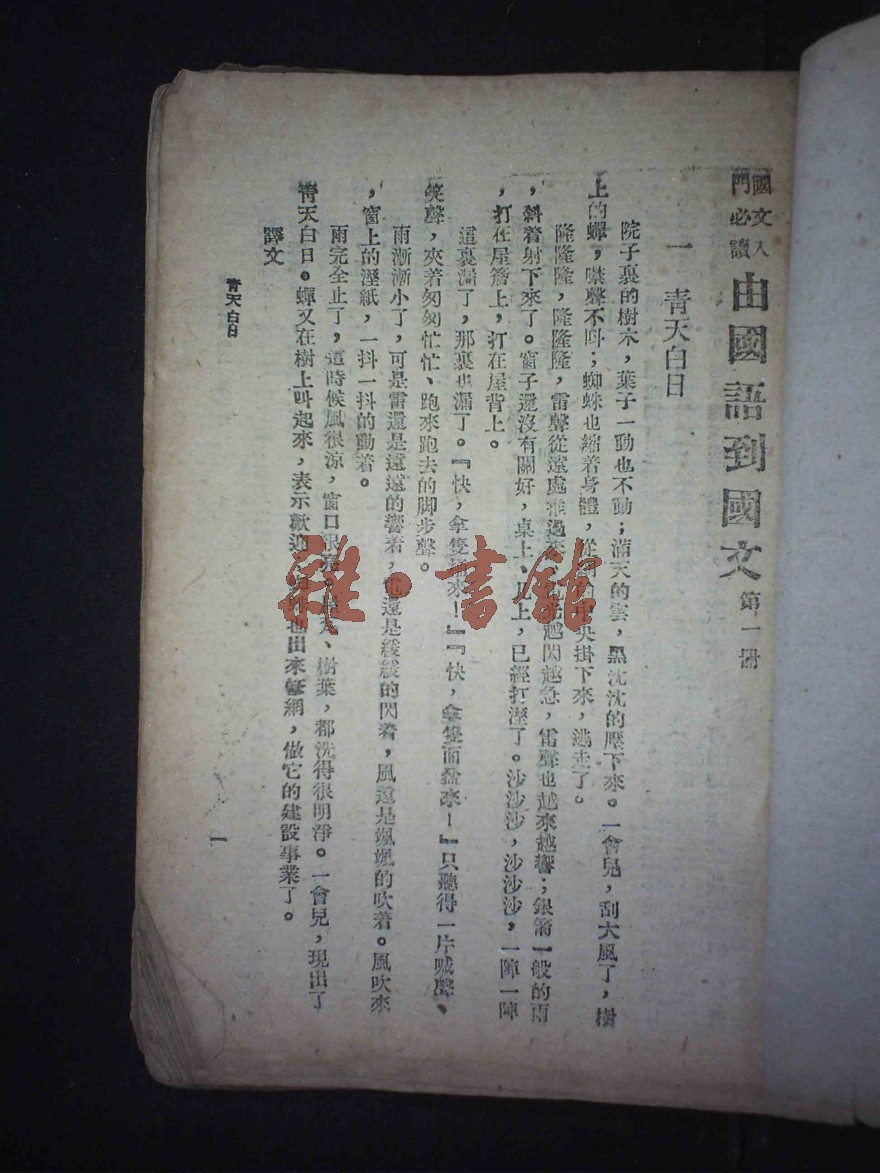 國文入
門必讀
由國語到國文 第一冊
一 青天白日
院子裏的樹木，葉子一動也不動；滿天的雲，黑沈沈的壓下來。一會兒，刮大風了，樹
上的蟬，噤聲不叫；蜘蛛也縮着身體，從網的中央掛下來，逃走了。
隆隆隆，隆隆隆，雷聲從遠處推過來，越閃越急，雷聲也越來越響；銀箭一般的雨
，斜着射下來了。窗子還沒有關好，桌上、几上，已經打溼了。沙沙沙，沙沙沙，一陣一陣
，打在屋簷上，打在屋背上。
這裏漏了，那裏也漏了。『快，拿隻來！』『快，拿隻面盆來！』只聽得一片喊聲、
笑聲，夾着匆匆忙忙、跑來跑去的脚步聲。
雨漸漸小了，可是雷還是遠遠的響着，電還是緩緩的閃着，風還是颯颯的吹着。風吹來
，窗上的溼紙，一抖一抖的動着。
雨完全止了，這時候風很涼，窗口很、樹葉，都洗得很明淨。一會兒，現出了
青天白日。蟬又在樹上叫起來，表示歡迎也出來修網，做它的建設事業了。
譯文
青天白日
一
雜·書館